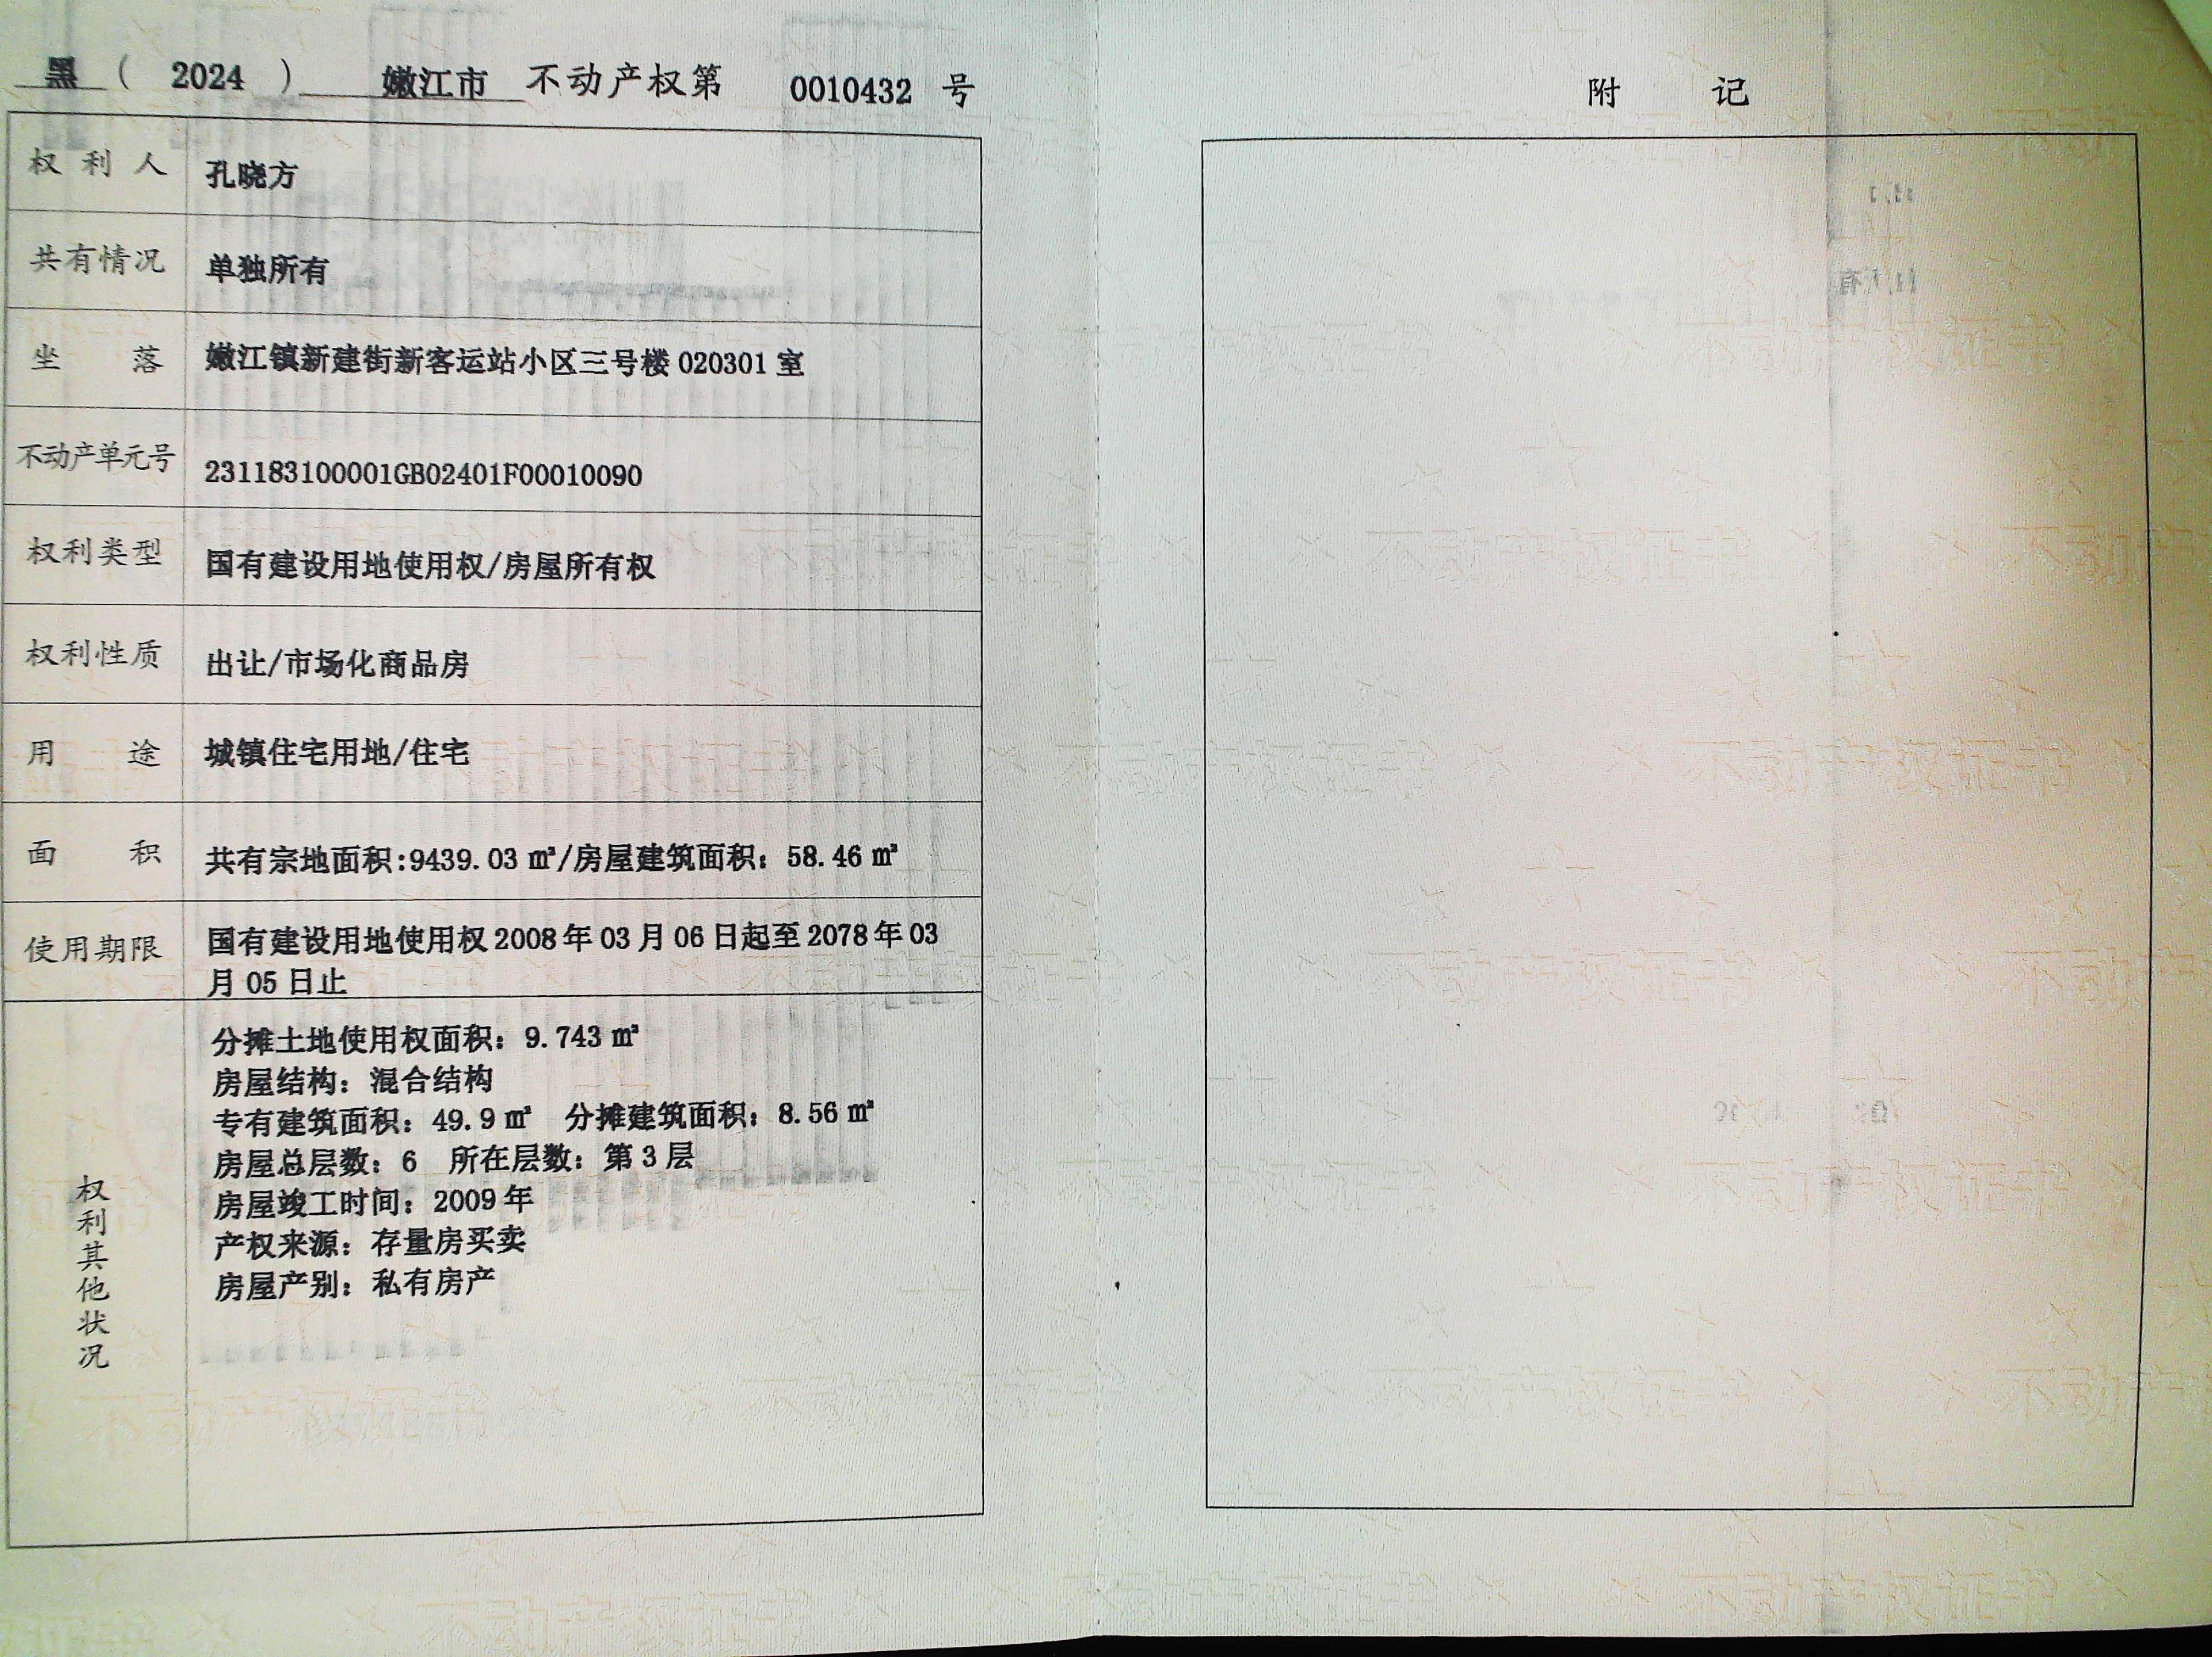 黑 ( 2024 ) 嫩江市 不动产权第 0010432 号
权利人 孔晓方
共有情况 单独所有
坐落 嫩江镇新建街新客运站小区三号楼 020301 室
不动产单元号 231183100001GB02401F00010090
权利类型 国有建设用地使用权/房屋所有权
权利性质 出让/市场化商品房
用途 城镇住宅用地/住宅
面积 共有宗地面积:9439.03 ㎡/房屋建筑面积: 58.46 ㎡
使用期限 国有建设用地使用权 2008 年 03 月 06 日起至 2078 年 03
月 05 日止
权利其他状况
分摊土地使用权面积: 9.743 ㎡
房屋结构: 混合结构
专有建筑面积: 49.9 ㎡ 分摊建筑面积: 8.56 ㎡
房屋总层数: 6 所在层数: 第 3 层
房屋竣工时间: 2009 年
产权来源: 存量房买卖
房屋产别: 私有房产
附记